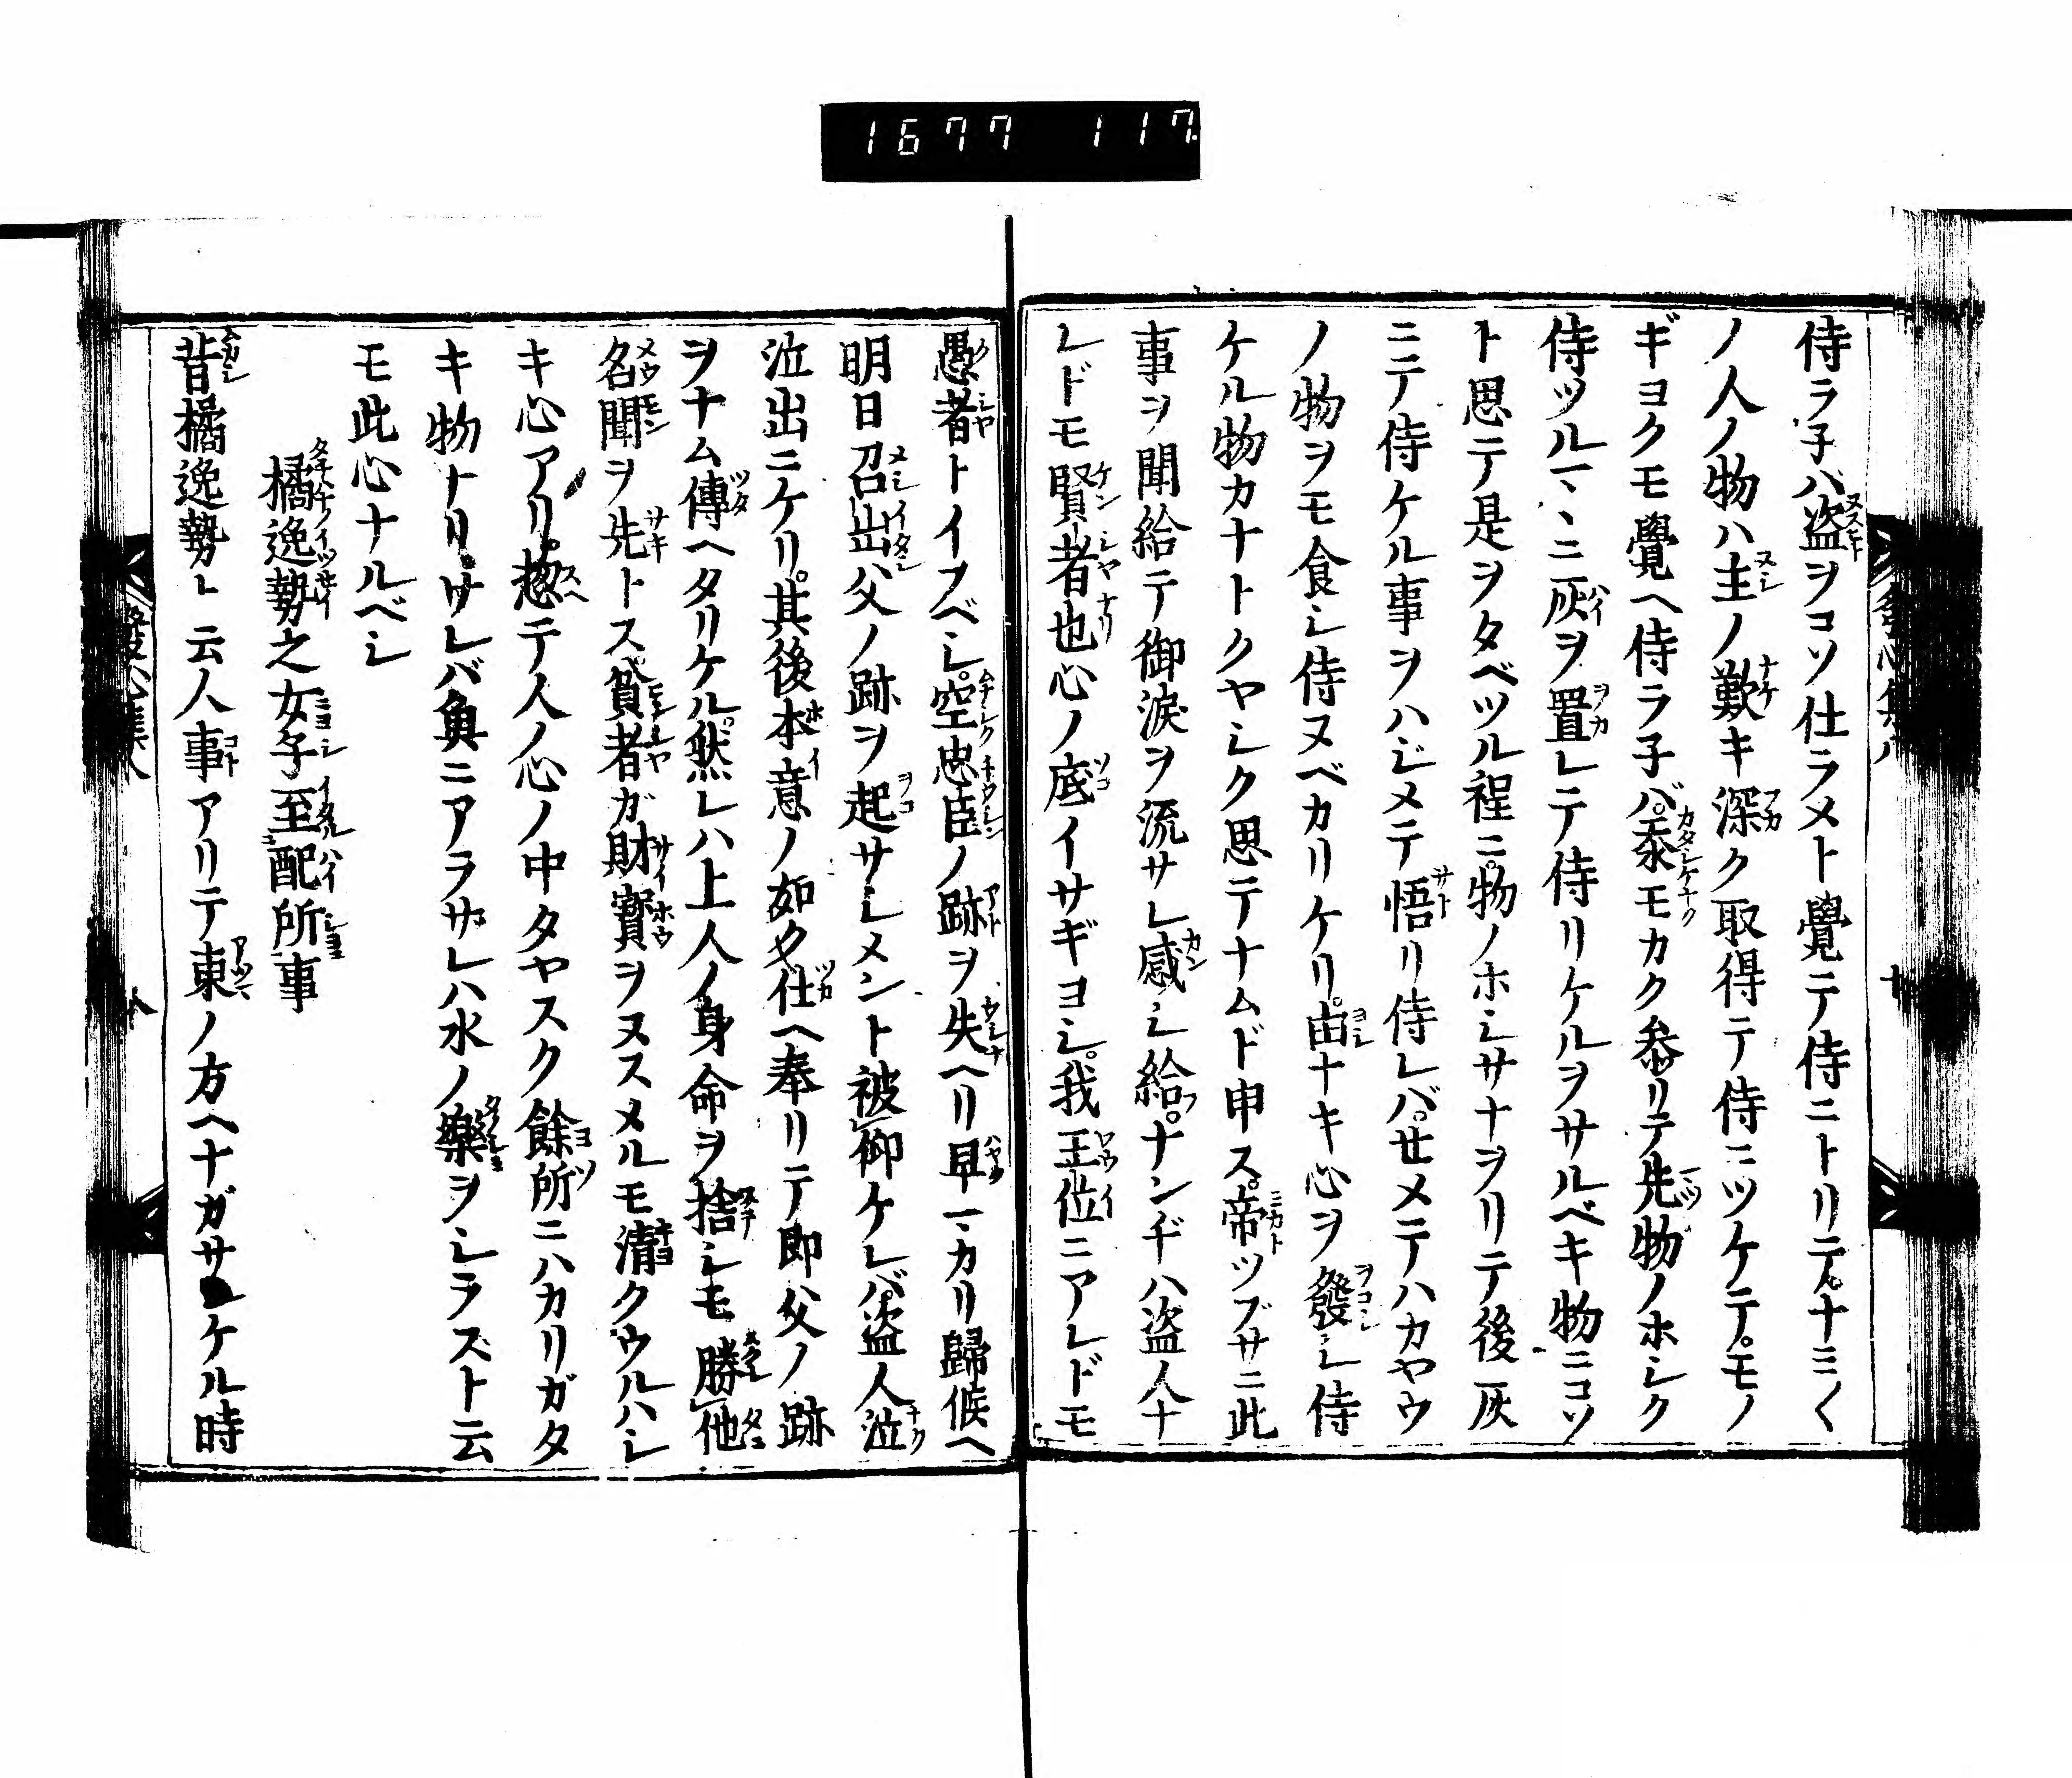 1677 117
侍ラ子バ盗ヲコソ仕ラメト覺テ侍ニトリテ。ナミ〱
ノ人ノ物ハ主ノ歎キ深ク取得テ侍ニツケテ。モノ
ギヨクモ覺ヘ侍ラ子バ。忝モカク參リテ先物ノホシク
侍ツルマヽニ灰ヲ置レテ侍リケルヲサルベキ物ニコソ
ト思テ是ヲタベツル程ニ。物ノホシサナヲリテ後灰
ニテ侍ケル事ヲハジメテ悟リ侍レバ。せメテハカヤウ
ノ物ヲモ食シ侍ヌベカリケリ。由ナキ心ヲ發シ侍
ケル物カナトクヤシク思テナムド申ス。帝ツブサニ此
事ヲ聞給テ御涙ヲ流サレ感シ給フ。ナンヂハ盗人ナ
レドモ賢者也心ノ底イサギヨシ。我王位ニアレドモ
愚者トイフベシ。空忠臣ノ跡ヲ失ヘリ早マカリ歸候ヘ
明日召出父ノ跡ヲ起サレメント被仰ケレバ。盗人泣
泣出ニケリ。其後本意ノ如ク仕ヘ奉リテ即父ノ跡
ヲナム傳ヘタリケル。然レハ上人ノ身命ヲ捨シモ勝他
名聞ヲ先トス。貧者ガ財寳ヲヌスメルモ清クウルハシ
キ心アリ。惣テ人ノ心ノ中タヤスク餘所ニハカリガタ
キ物トリ。サレバ魚ニアラサレハ水ノ樂ヲシラスト云
モ此心ナルベシ
橘逸勢之女子至配所事
昔橘逸勢ト云人事アリテ東ノ方ヘナガサレケル時